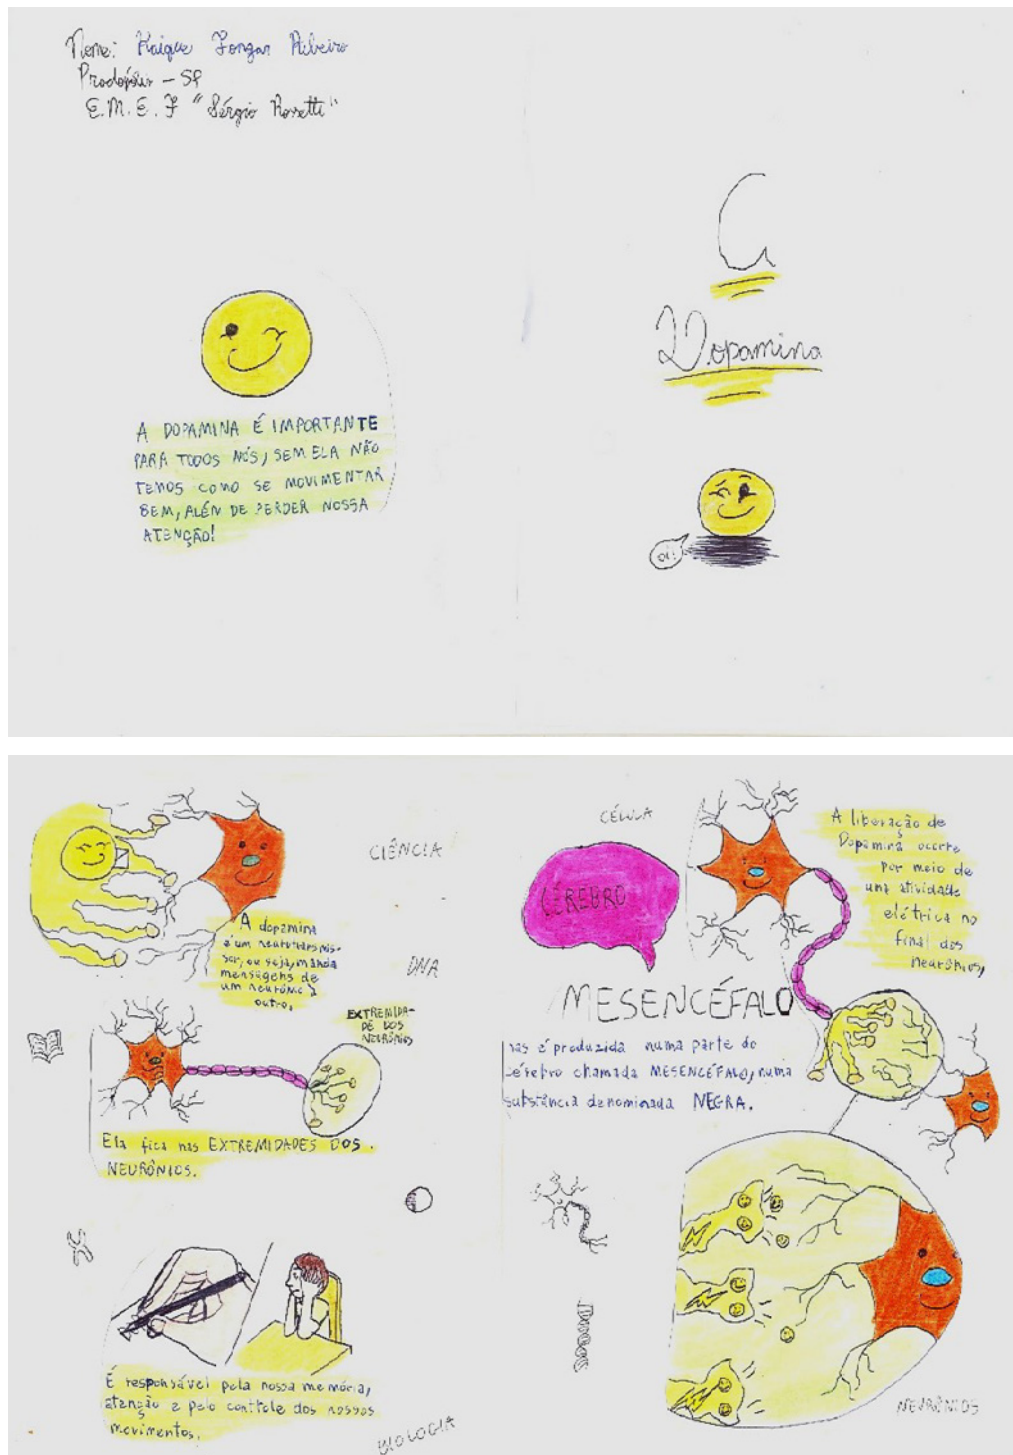 Nome: Kaique Zongar Ribeiro
Pradópolis - SP
E.M.E.F "Sérgio Rossetti"
A DOPAMINA É IMPORTANTE
PARA TODOS NÓS, SEM ELA NÃO
TEMOS COMO SE MOVIMENTAR
BEM, ALÉN DE PERDER NOSSA
ATENÇÃO!
A
Dopamina
OI!
CIÊNCIA
A dopamina
é um neurotransmis-
sor, ou seja, manda
mensagens de
um neurônio à
outro.
DNA
EXTREMIDA-
DE DOS
NEURÔNIOS
Ela fica nas EXTREMIDADES DOS
NEURÔNIOS.
É responsável pela nossa memória,
atenção e pelo controle dos nossos
movimentos.
BIOLOGIA
CÉLULA
CÉREBRO
A liberação de
Dopamina ocorre
por meio de
uma atividade
elétrica no
final dos
neurônios,
MESENCÉFALO
mas é produzida numa parte do
cérebro chamada MESENCÉFALO, numa
substância denominada NEGRA.
NEURÔNIOS